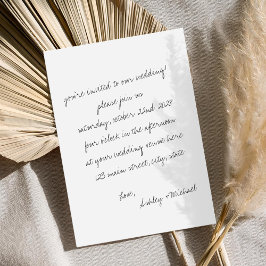 you're invited to our wedding!
please join us
saturday, october 22nd 2023
four o'clock in the afternoon
at your wedding venue here
123 main street, city, state
Love,
Ashley + Michael